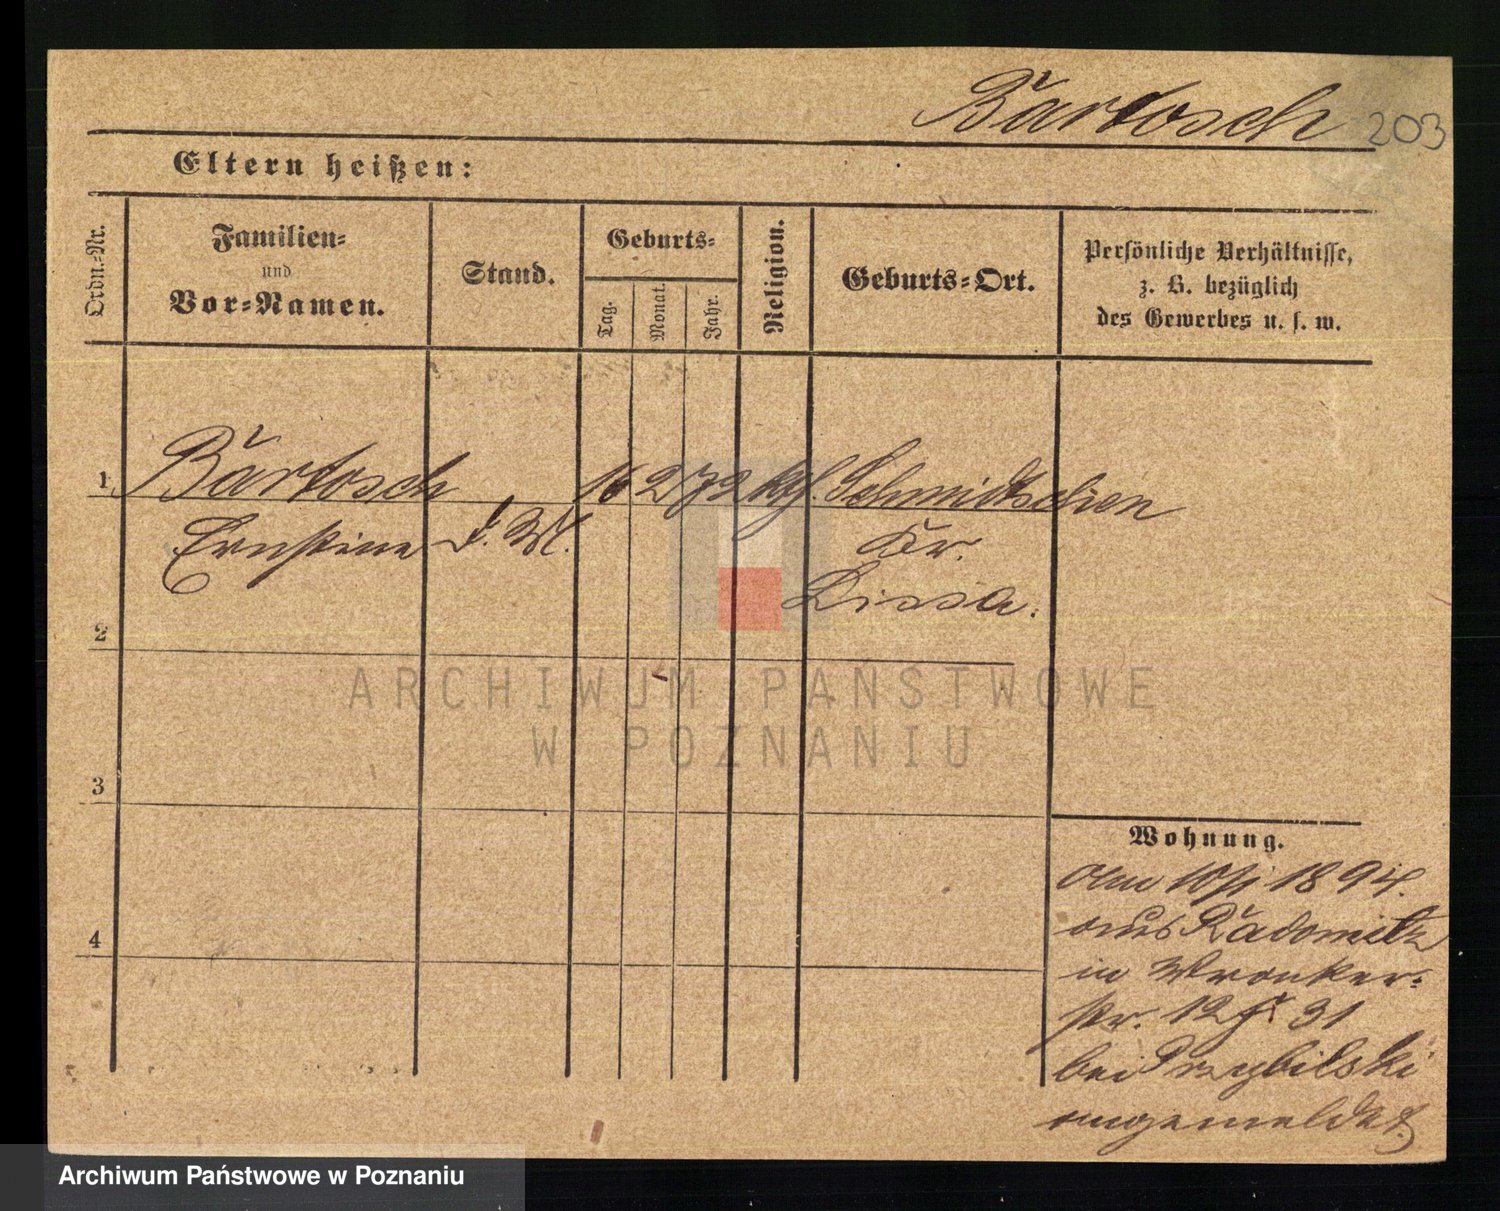 Bartosch 203
Eltern heißen:
Ordn.-Nr.
Familien-
und
Vor-Namen.
Stand.
Geburts-
Tag.
Monat.
Jahr.
Religion.
Geburts-Ort.
Persönliche Verhältnisse,
z. B. bezüglich
des Gewerbes u. s. w.
1 Bartosch 16 2 72 kth. Schmidtchen
Ernstine d. M. Kr.
Lissa.
2
3
4
ARCHIWUM PAŃSTWOWE
W POZNANIU
Wohnung.
Am 10/1 1894.
aus Radomitz
in Wronker-
str. 12 31
bei Przybilski
angemeldet
Archiwum Państwowe w Poznaniu